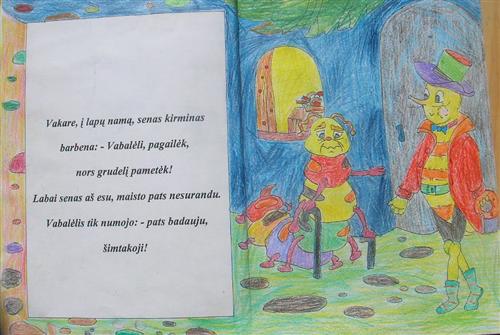 Vakare, į lapų namą, senas kirminas
barbena: - Vabalėli, pagailėk,
nors grudelį pametėk!
Labai senas aš esu, maisto pats nesurandu.
Vabalėlis tik numojo: - pats badauju,
šimtakoji!